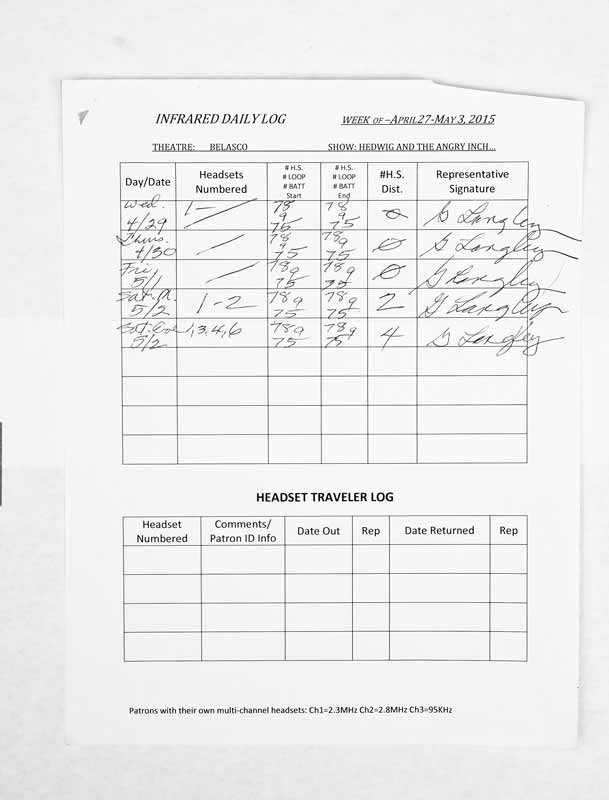 INFRARED DAILY LOG WEEK OF –APRIL27-MAY 3, 2015
THEATRE: BELASCO SHOW: HEDWIG AND THE ANGRY INCH...
Day/Date Headsets Numbered # H.S. # LOOP # BATT Start # H.S. # LOOP # BATT End #H.S. Dist. Representative Signature
Wed. 4/29 1- 78 9 75 78 9 75 0 G Langley
Thurs. 4/30 78 9 75 789 75 0 G Langley
Fri, 5/1 789 75 789 75 0 G Langley
5/2 1-2 789 75 789 75 2 G Langley
Sat. Eve 5/2 1,3,4,6 789 75 789 75 4 G Langley
HEADSET TRAVELER LOG
Headset Numbered Comments/ Patron ID Info Date Out Rep Date Returned Rep
Patrons with their own multi-channel headsets: Ch1=2.3MHz Ch2=2.8MHz Ch3=95KHz